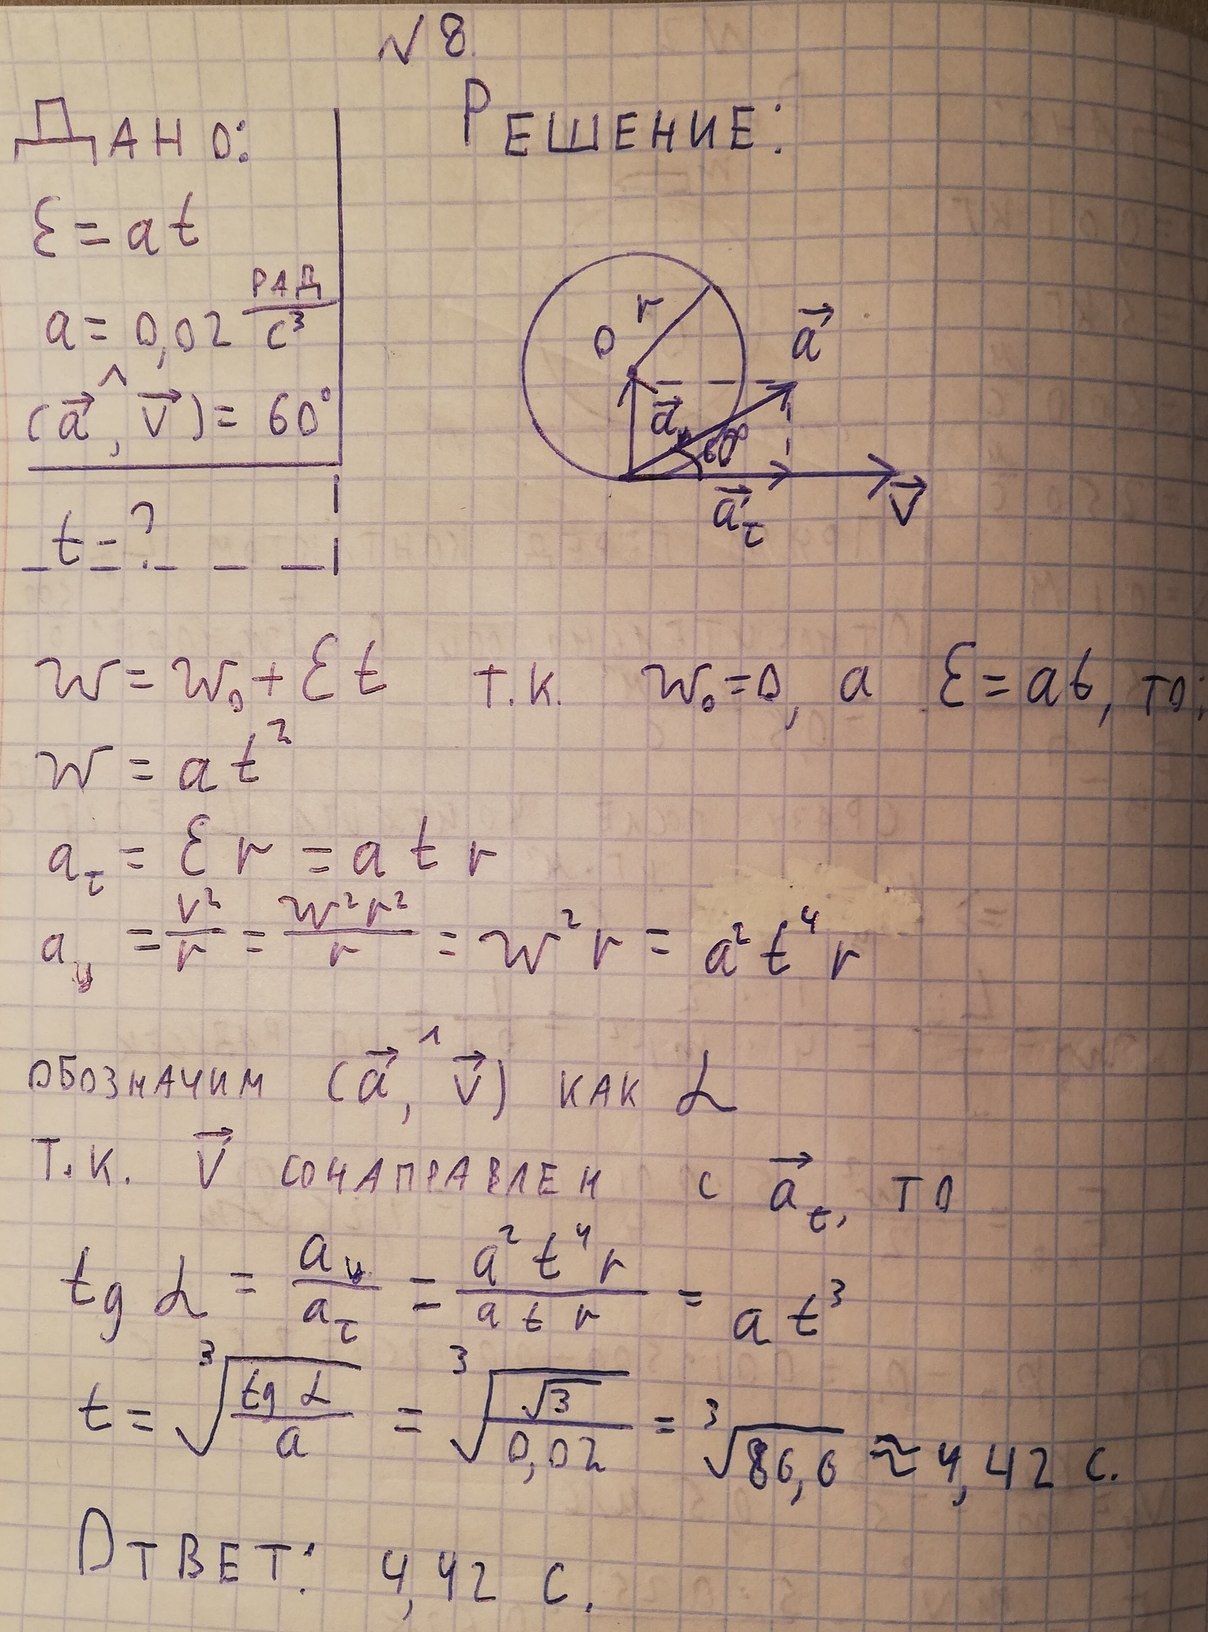 № 8.
ДАНО:
ε = at
a = 0,02 РАД/с³
(a⃗ ,^ v⃗) = 60°
t - ?
РЕШЕНИЕ:
r
O
a⃗
a⃗ₙ
60°
a⃗τ
v⃗
w = w₀ + εt т.к. w₀ = 0, а ε = at, то:
w = at²
aτ = εr = atr
aц = v²/r = w²r²/r = w²r = a²t⁴r
ОБОЗНАЧИМ (a⃗ ,^ v⃗) КАК α
Т.К. v⃗ СОНАПРАВЛЕН С a⃗t, ТО
tg α = aц/aτ = a²t⁴r/atr = at³
t = ³√(tg α/a) = ³√(√3/0,02) = ³√86,6 ≈ 4,42 с.
ОТВЕТ: 4,42 с.